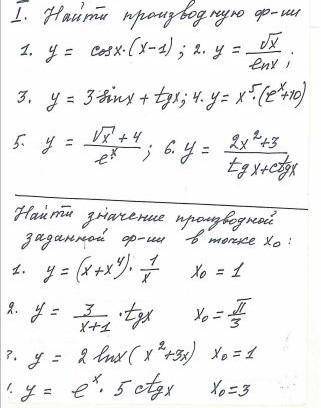 I. Найти производную ф-ии
1. y = cosx·(x-1); 2. y = √x / lnx;
3. y = 3sinx + tgx; 4. y = x⁵·(e^x+10)
5. y = (√x + 4) / e^x; 6. y = (2x²+3) / (tgx+ctgx)
Найти значение производной
заданной ф-ии в точке x₀:
1. y = (x+x⁴)·1/x x₀ = 1
2. y = 3/(x+1) · tgx x₀ = π/3
y = 2 lnx(x²+3x) x₀ = 1
y = e^x · 5 ctgx x₀ = 3